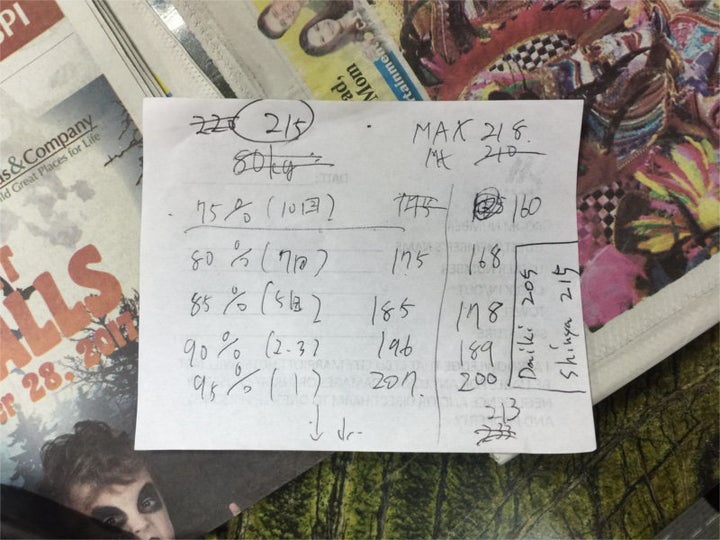 PI
s&Company
ld Great Places for Life
ALLS
r 28, 2017
ad,
Mom
tertainment
220 215
80kg
MAX 218.
MAX 210
75% (10回) 175 160
80% (7回) 175 168
85% (5回) 185 178
90% (2.3) 196 189
95% (1) 207 200
213
Daiki 205
Shinya 215